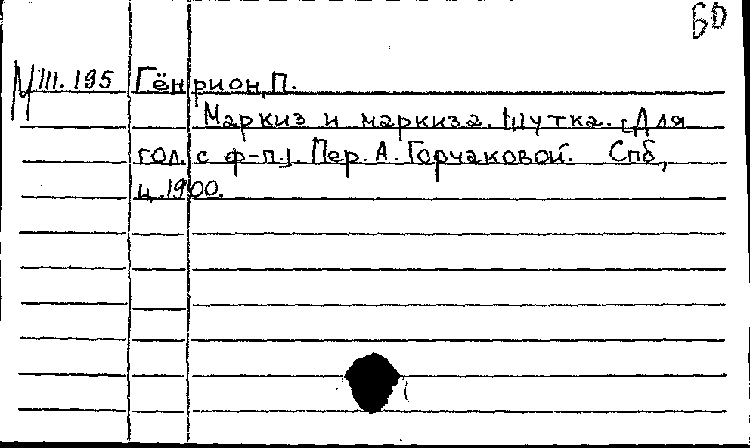 60
М III.195 Гёнрион, П.
Маркиз и маркиза. Шутка. [Для
гол. с ф-п.]. Пер. А. Горчаковой. Спб,
ц. 1900.